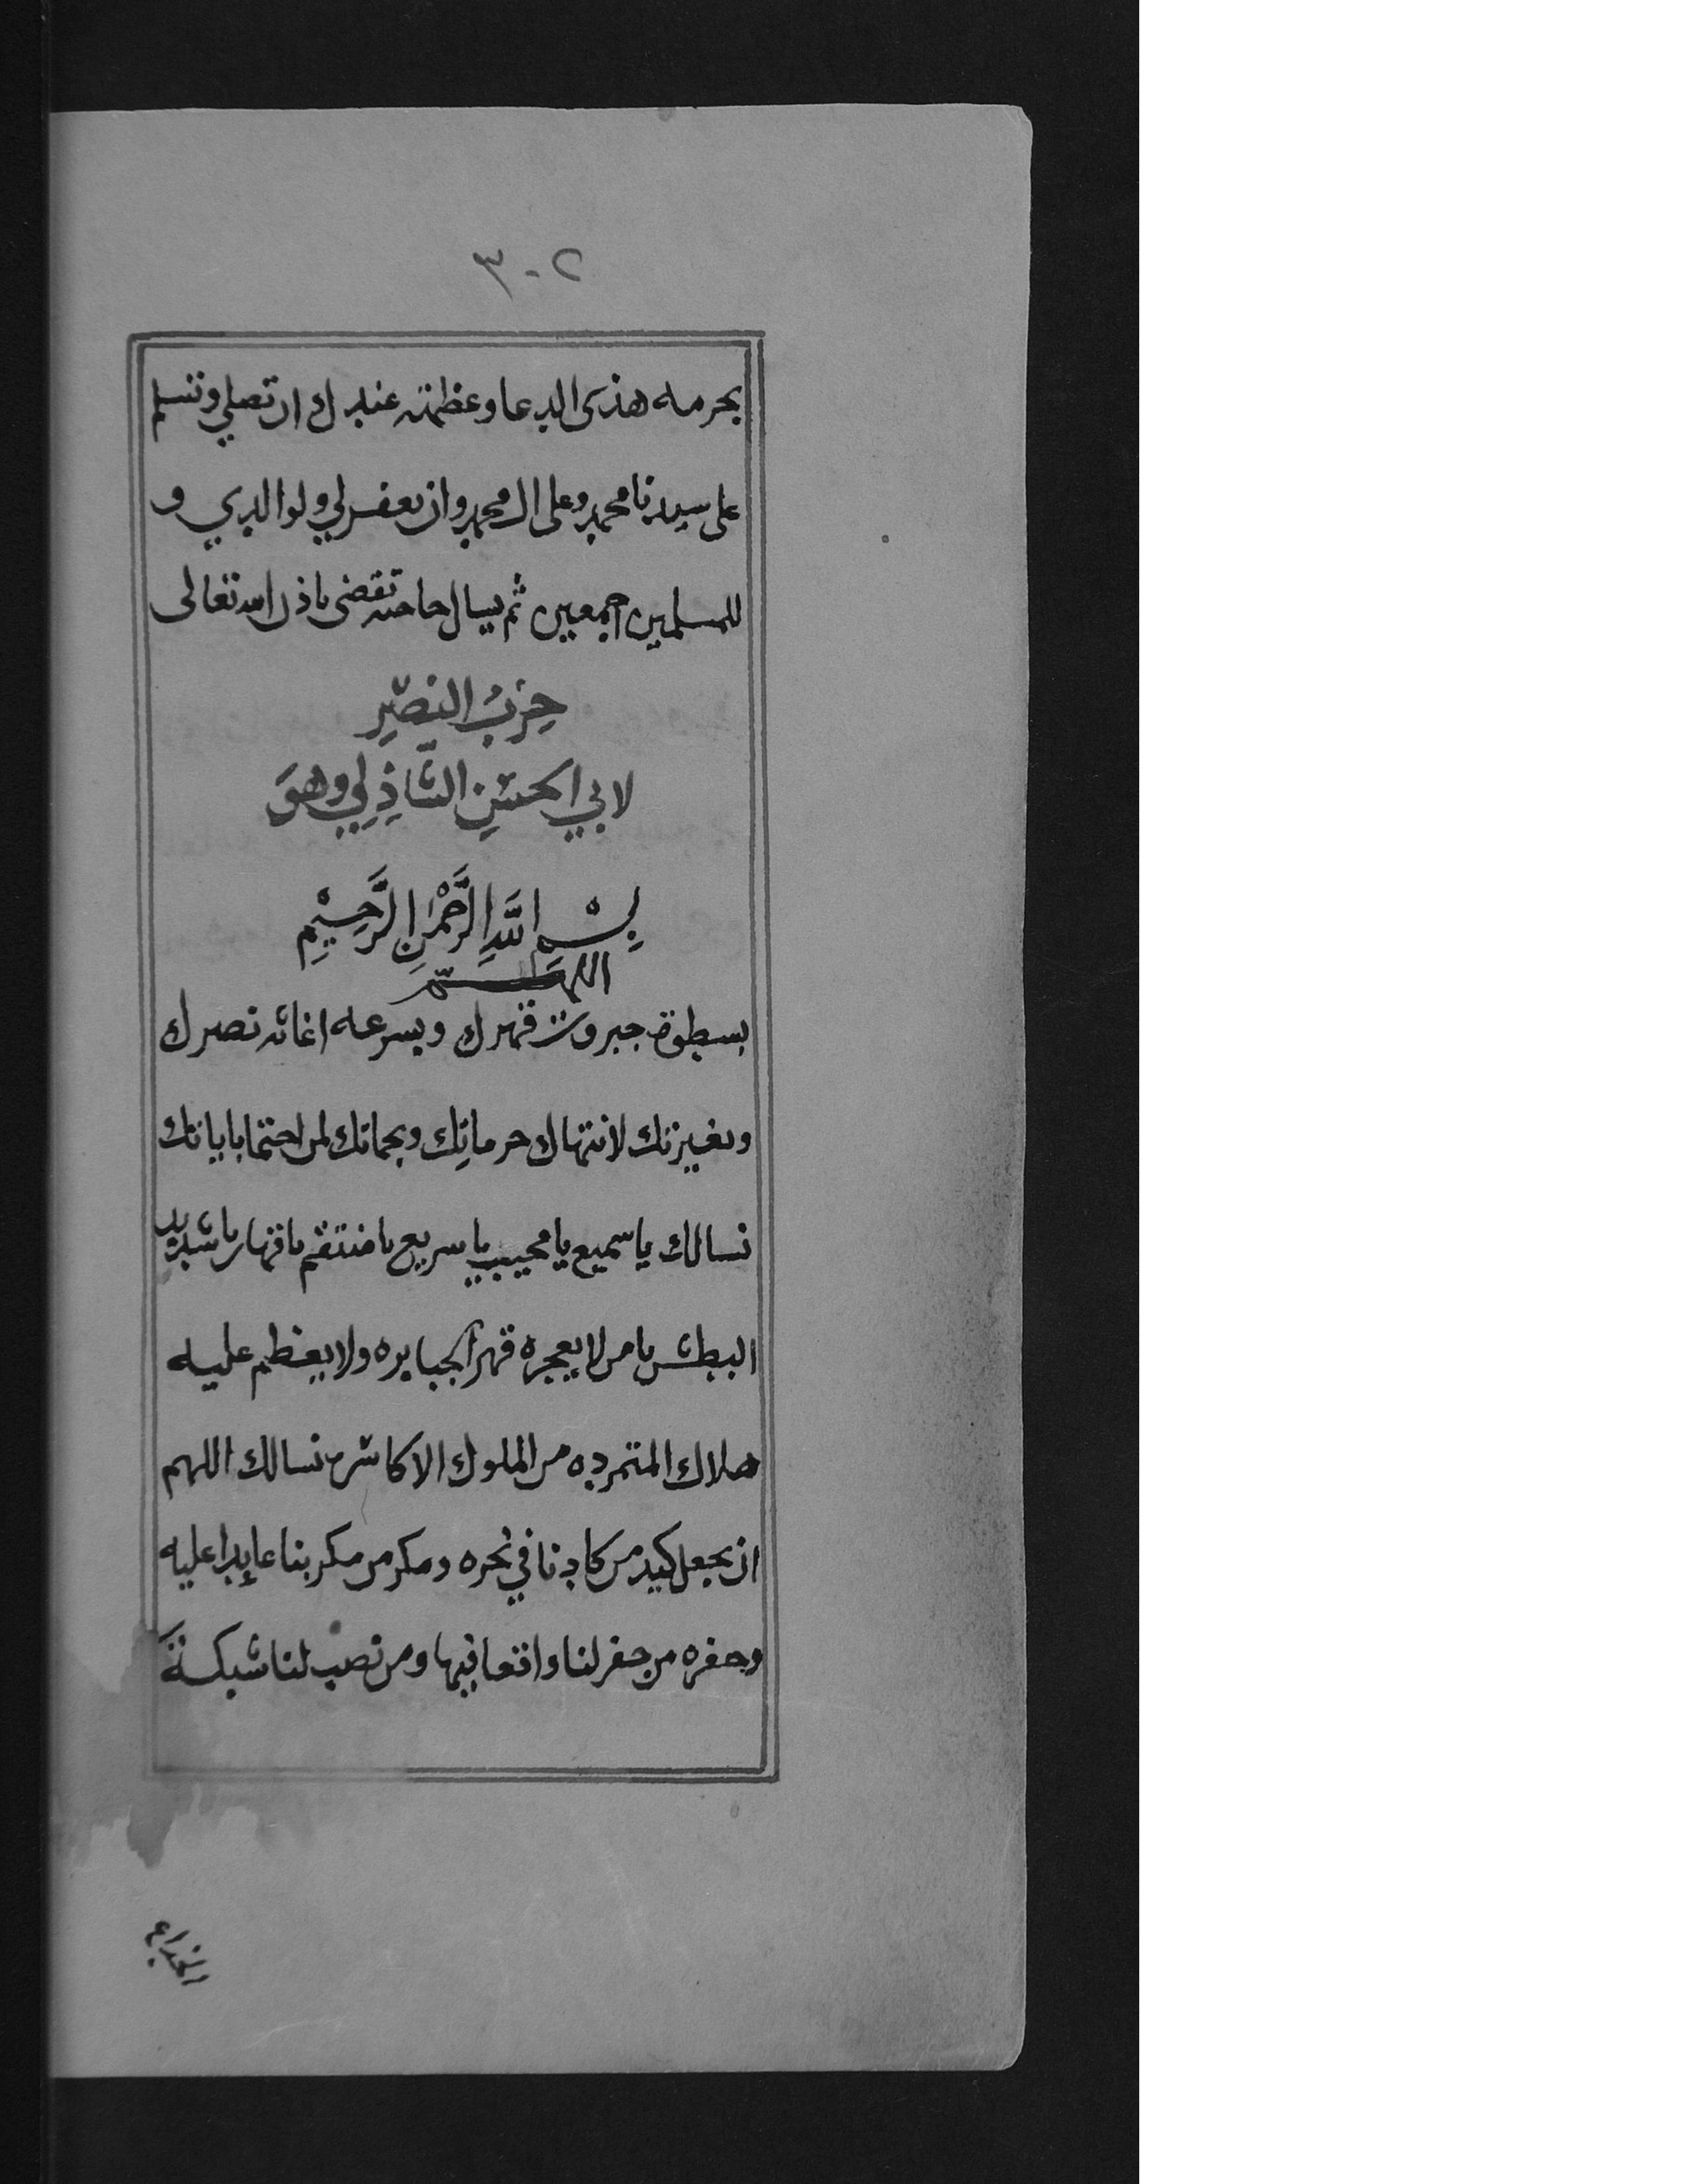 ٣٠٢
بحرمه هذى الدعا وعظمته عندك ان تصلي وتسلم
على سيدنا محمد وعلى ال محمد وان تغفرلي ولوالدي و
للمسلمين اجمعين ثم يسال حاجته تقضى باذن الله تعالى
حِزبُ النصْرِ
لابي الحسَنِ الشّاذِلِي وهوَ
بِسْمِ اللَّهِ الرَّحْمٰنِ الرَّحِيْمِ
اللهم
بسطوة جبروت قهرك وبسرعه اغاثه نصرك
وبغيرتك لانتهاك حرماتِك وبحماتك لمن احتما باياتك
نسالك ياسميع يا مجيب ياسريع يا منتقم يا قهار يا شديد
البطش يا من لا يعجزه قهر الجبابره ولا يعظم عليه
هلاك المتمرده من الملوك الاكاسره نسالك اللهم
ان تجعل كيد من كادنا في نحره ومكر من مكر بنا عايدا عليه
وحفره من حفر لنا واقعا فيها ومن نصب لنا شبكةَ
الخداع